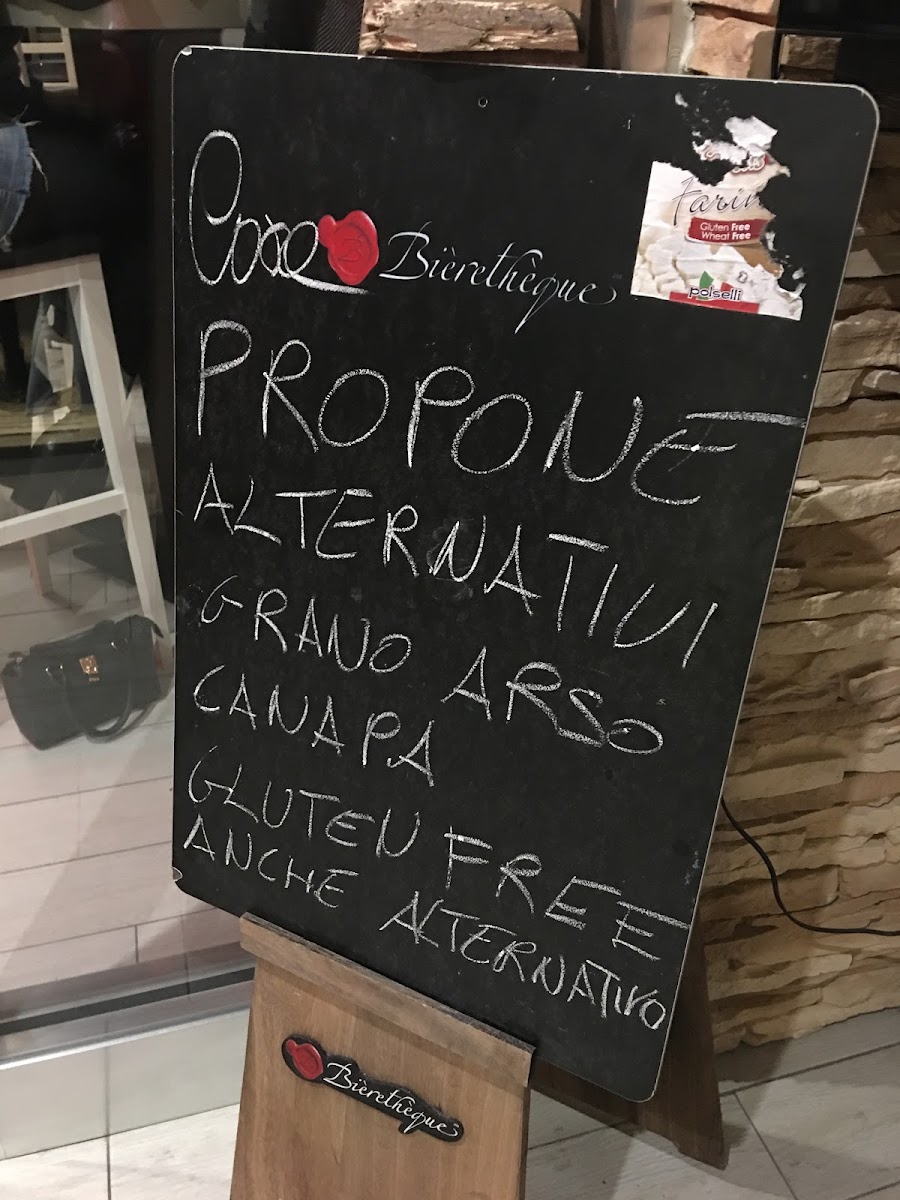 Bièrethèque
Farin
Gluten Free
Wheat Free
polselli
PROPONE
ALTERNATIVI
GRANO ARSO
CANAPA
GLUTEN FREE
ANCHE ALTERNATIVO
Bièrethèque